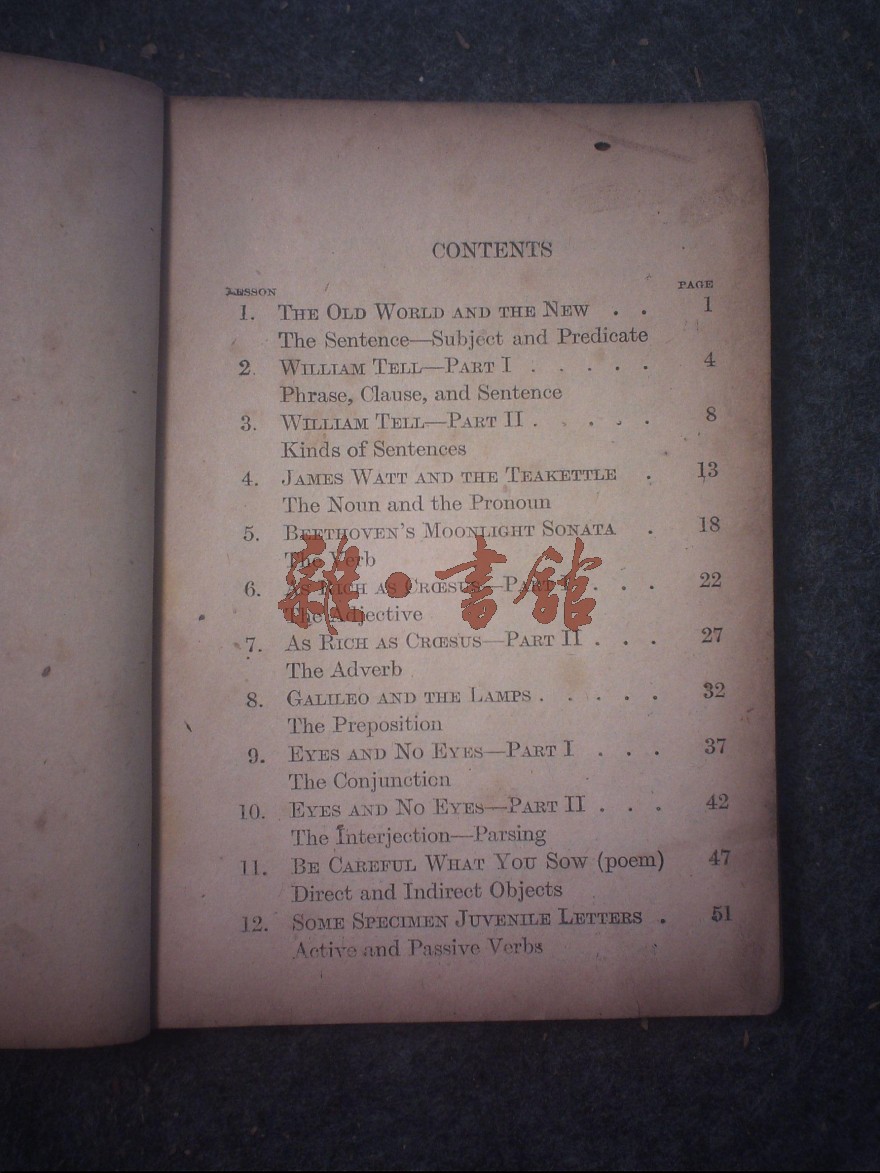 CONTENTS
LESSON PAGE
1. THE OLD WORLD AND THE NEW . . 1
The Sentence—Subject and Predicate
2. WILLIAM TELL—PART I . . . . . 4
Phrase, Clause, and Sentence
3. WILLIAM TELL—PART II . . . . . 8
Kinds of Sentences
4. JAMES WATT AND THE TEAKETTLE . 13
The Noun and the Pronoun
5. BEETHOVEN'S MOONLIGHT SONATA . 18
The Verb
6. AS RICH AS CRŒSUS—PART I . . . 22
The Adjective
7. AS RICH AS CRŒSUS—PART II . . . 27
The Adverb
8. GALILEO AND THE LAMPS . . . . . 32
The Preposition
9. EYES AND NO EYES—PART I . . . 37
The Conjunction
10. EYES AND NO EYES—PART II . . . 42
The Interjection—Parsing
11. BE CAREFUL WHAT YOU SOW (poem) 47
Direct and Indirect Objects
12. SOME SPECIMEN JUVENILE LETTERS . 51
Active and Passive Verbs
雜·書館